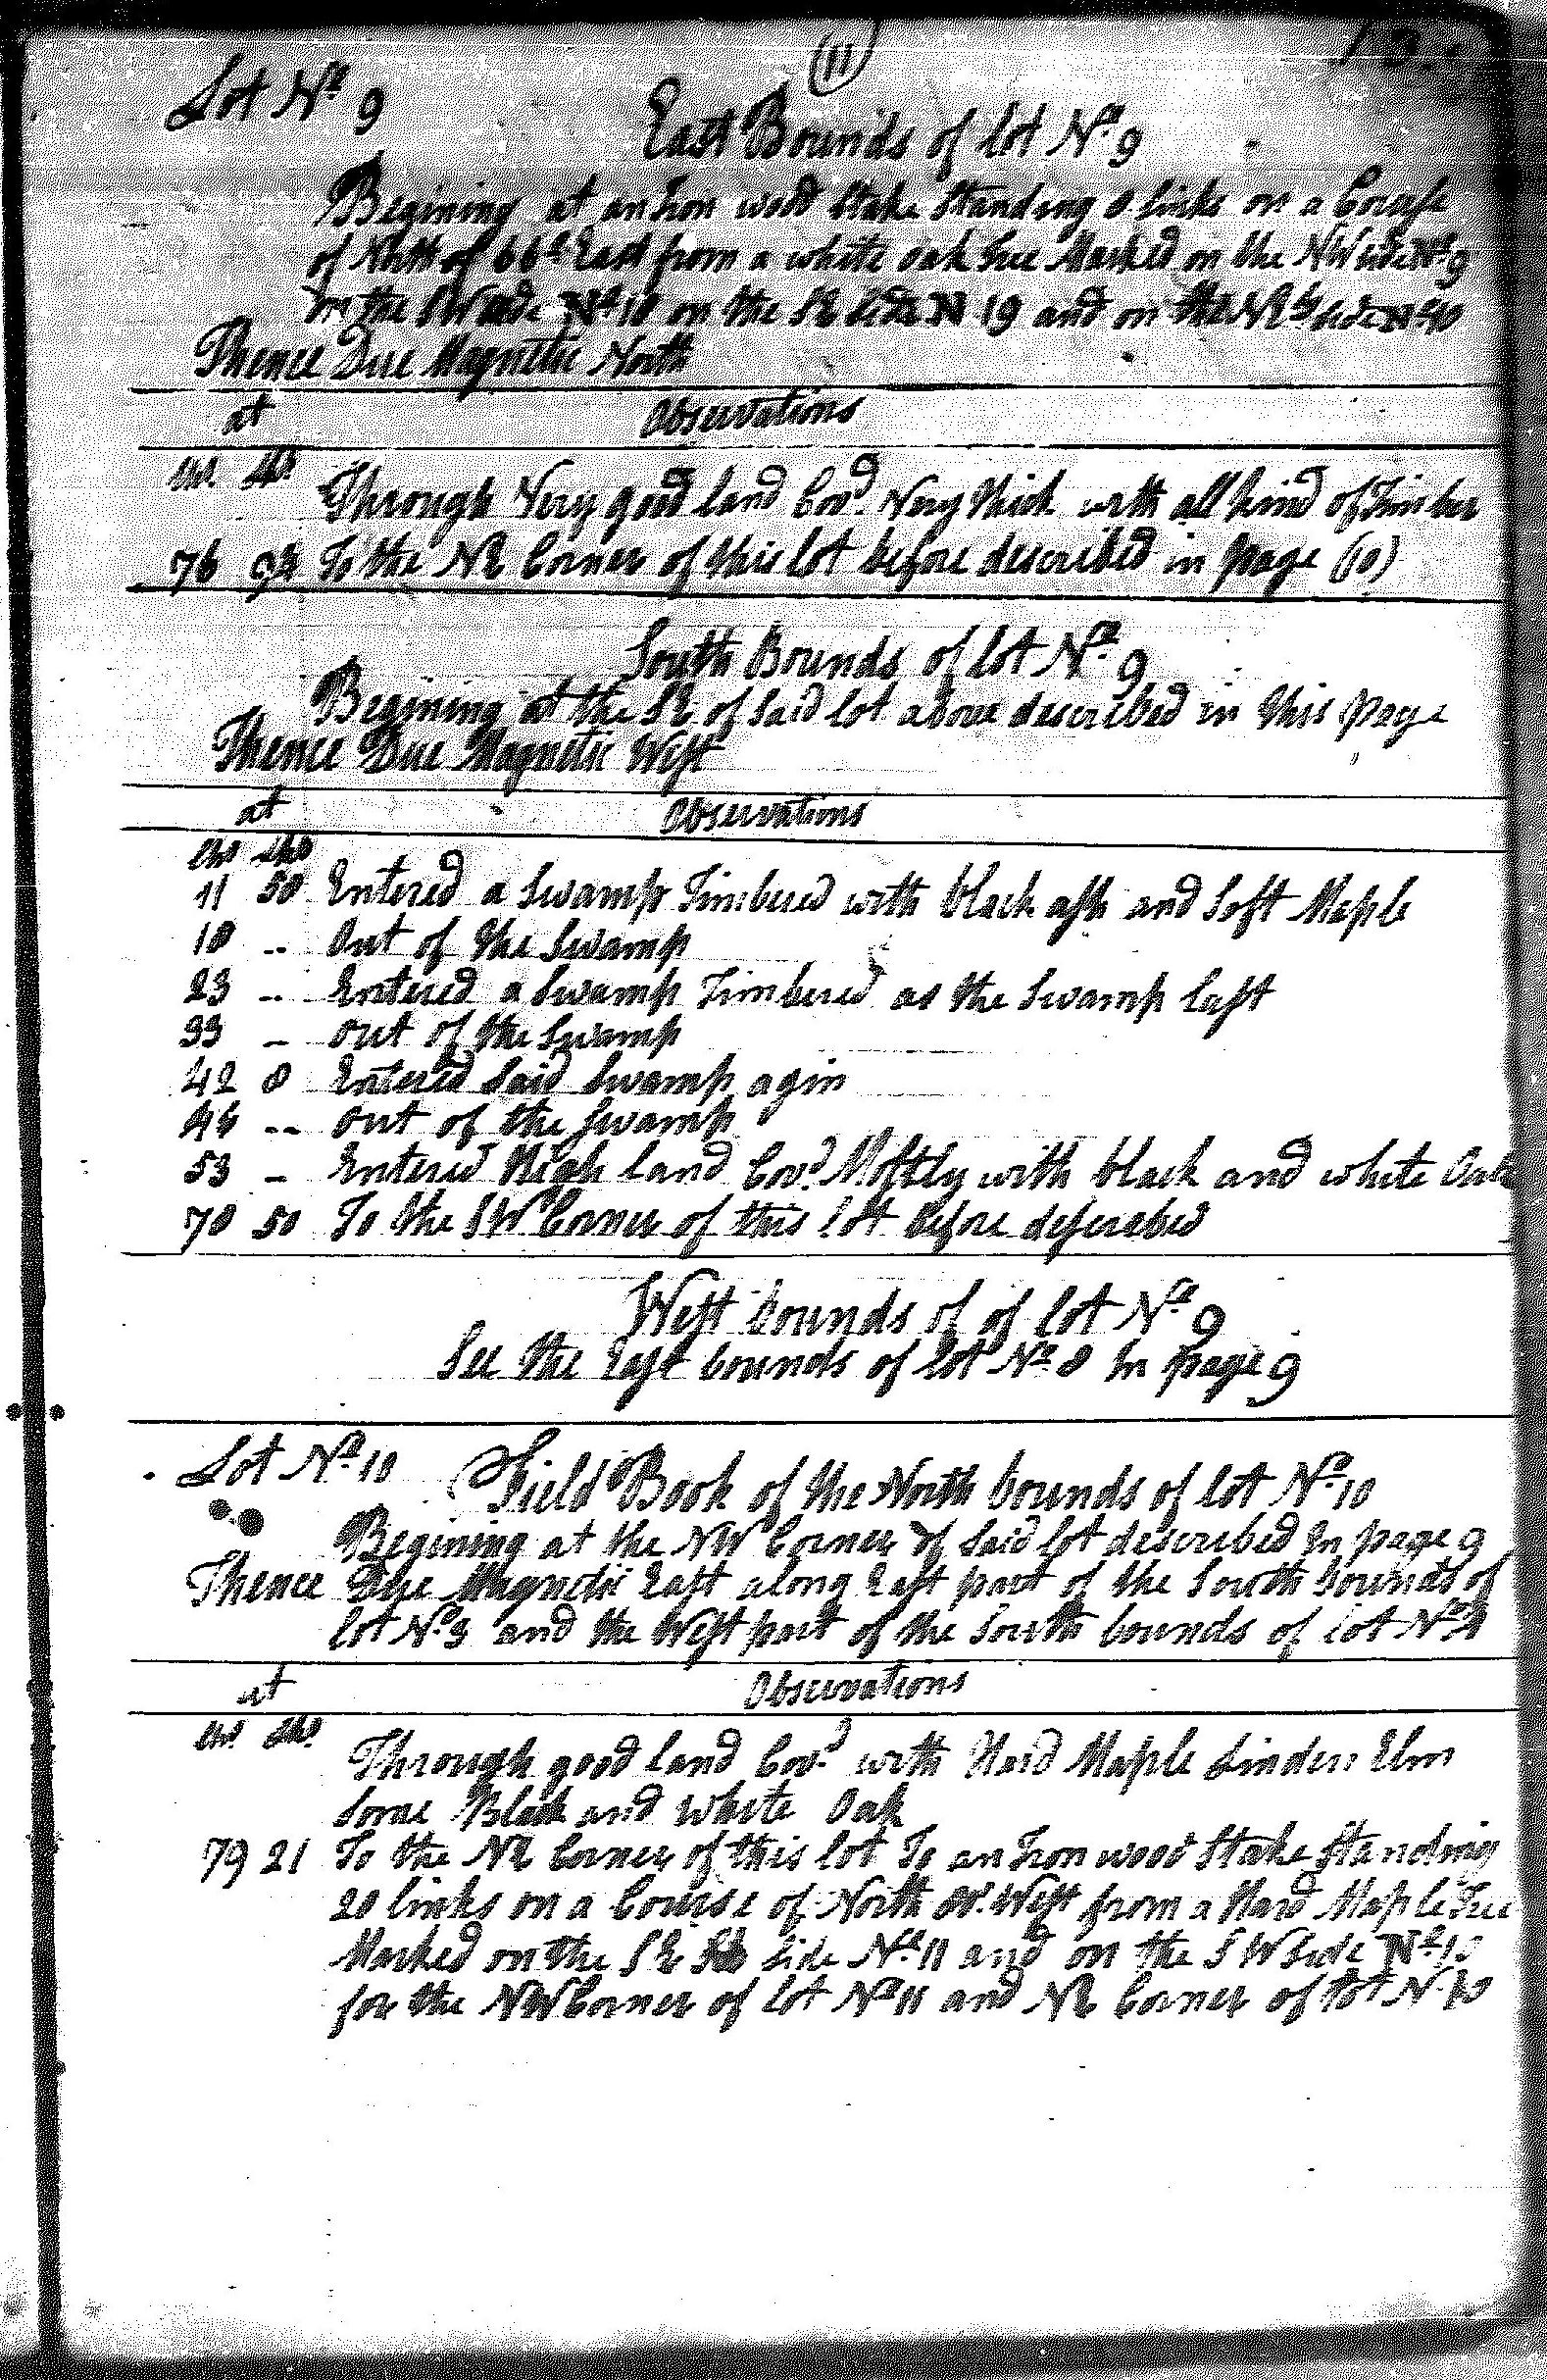 (11)
Lot No. 9
East Bounds of lot No. 9
Begining at an Iron wood Stake Standing 8 links on a Course
of North of 66d East from a white oak tree Marked on the NW side No. 9
on the SW side No. 10 on the SE side N 19 and on the NE side No.
Thence Due Magnetic North
at Observations
Chs. Lks.
Through Very good land Covd. Very thick with all kind of Timber
76 To the NE Corner of this lot before described in page (10)
South Bounds of lot No. 9
Begining at the SE of Said lot above described in this page
Thence Due Magnetic West
at Observations
Chs Lks
11 50 Entered a Swamp Timbered with black ash and Soft Maple
18 .. Out of the Swamp
23 .. Entered a Swamp Timbered as the Swamp last
33 – out of the Swamp
42 8 Entered Said Swamp agin
44 .. out of the Swamp
53 – Entered High land Covd. Mostly with black and white Oak
70 50 To the SW Corner of this lot before described
West bounds of of lot No. 9
See the East bounds of lot No. 8 In page 9
Lot No. 10 Field Book of the North bounds of lot No. 10
Begining at the NW Corner of Said lot described In page 9
Thence Due Magnetic East along East part of the South bounds of
lot No. 3 and the West part of the South bounds of lot No.
at Observations
Chs. Lks.
Through good land Covd. with Hard Maple Linden Elm
Some Black and White Oak
79 21 To the NE Corner of this lot To an Iron wood Stake Standing
20 links on a Course of North West from a Hard Maple Tree
Marked on the SE side No. 11 and on the SW Side No. 10
for the NW Corner of lot No. 11 and NE Corner of lot N. 10